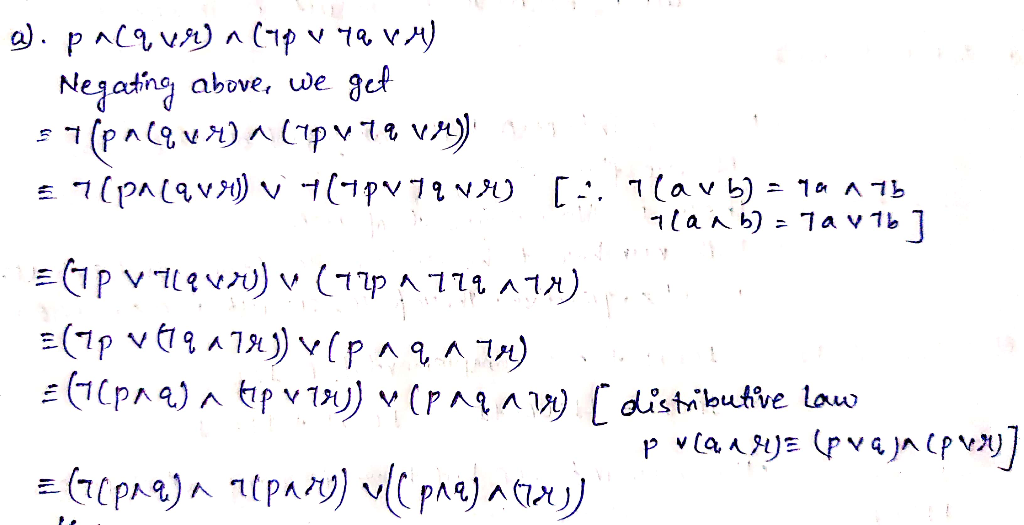 a). p ∧(q ∨ r) ∧ (¬p ∨ ¬q ∨ r)
Negating above, we get
≡ ¬(p ∧ (q ∨ r) ∧ (¬p ∨ ¬q ∨ r))
≡ ¬(p∧(q∨r)) ∨ ¬(¬p∨¬q∨r) [∵ ¬(a∨b) = ¬a ∧ ¬b
¬(a∧b) = ¬a ∨ ¬b]
≡(¬p ∨ ¬(q∨r)) ∨ (¬¬p ∧ ¬¬q ∧ ¬r)
≡(¬p ∨ (¬q ∧ ¬r)) ∨ (p ∧ q ∧ ¬r)
≡(¬(p∧q) ∧ (¬p ∨ ¬r)) ∨ (p ∧ q ∧ ¬r) [distributive Law
p ∨(q∧r)≡ (p∨q)∧(p∨r)]
≡ (¬(p∧q) ∧ ¬(p∧r)) ∨((p∧q)∧(¬r))